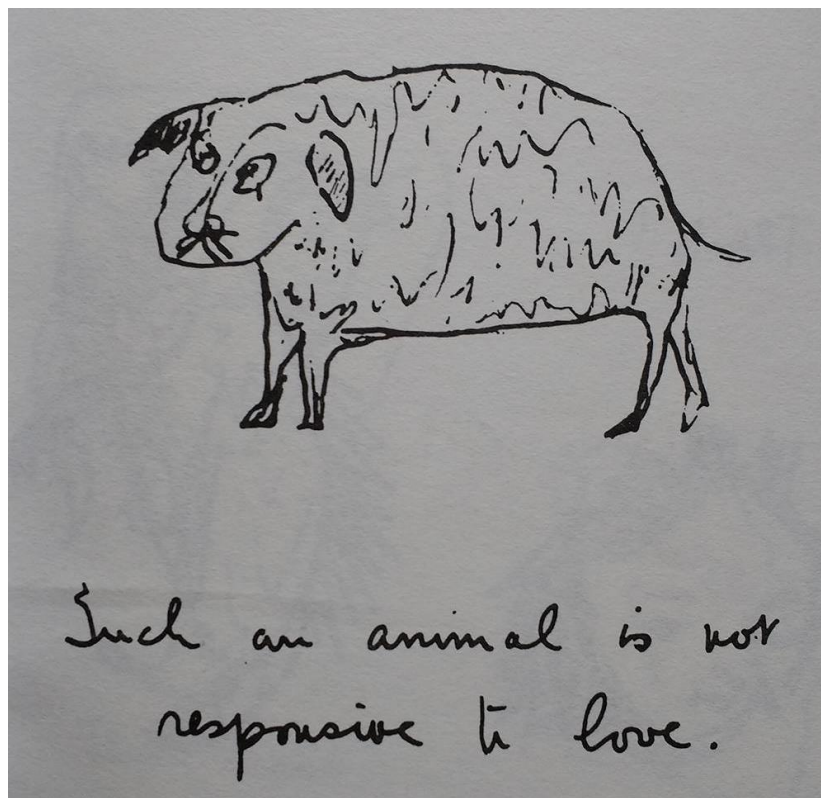 Such an animal is not
responsive to love.